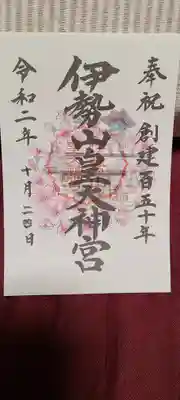 奉祝 創建百五十年
伊勢山皇大神宮
令和二年 十月二四日